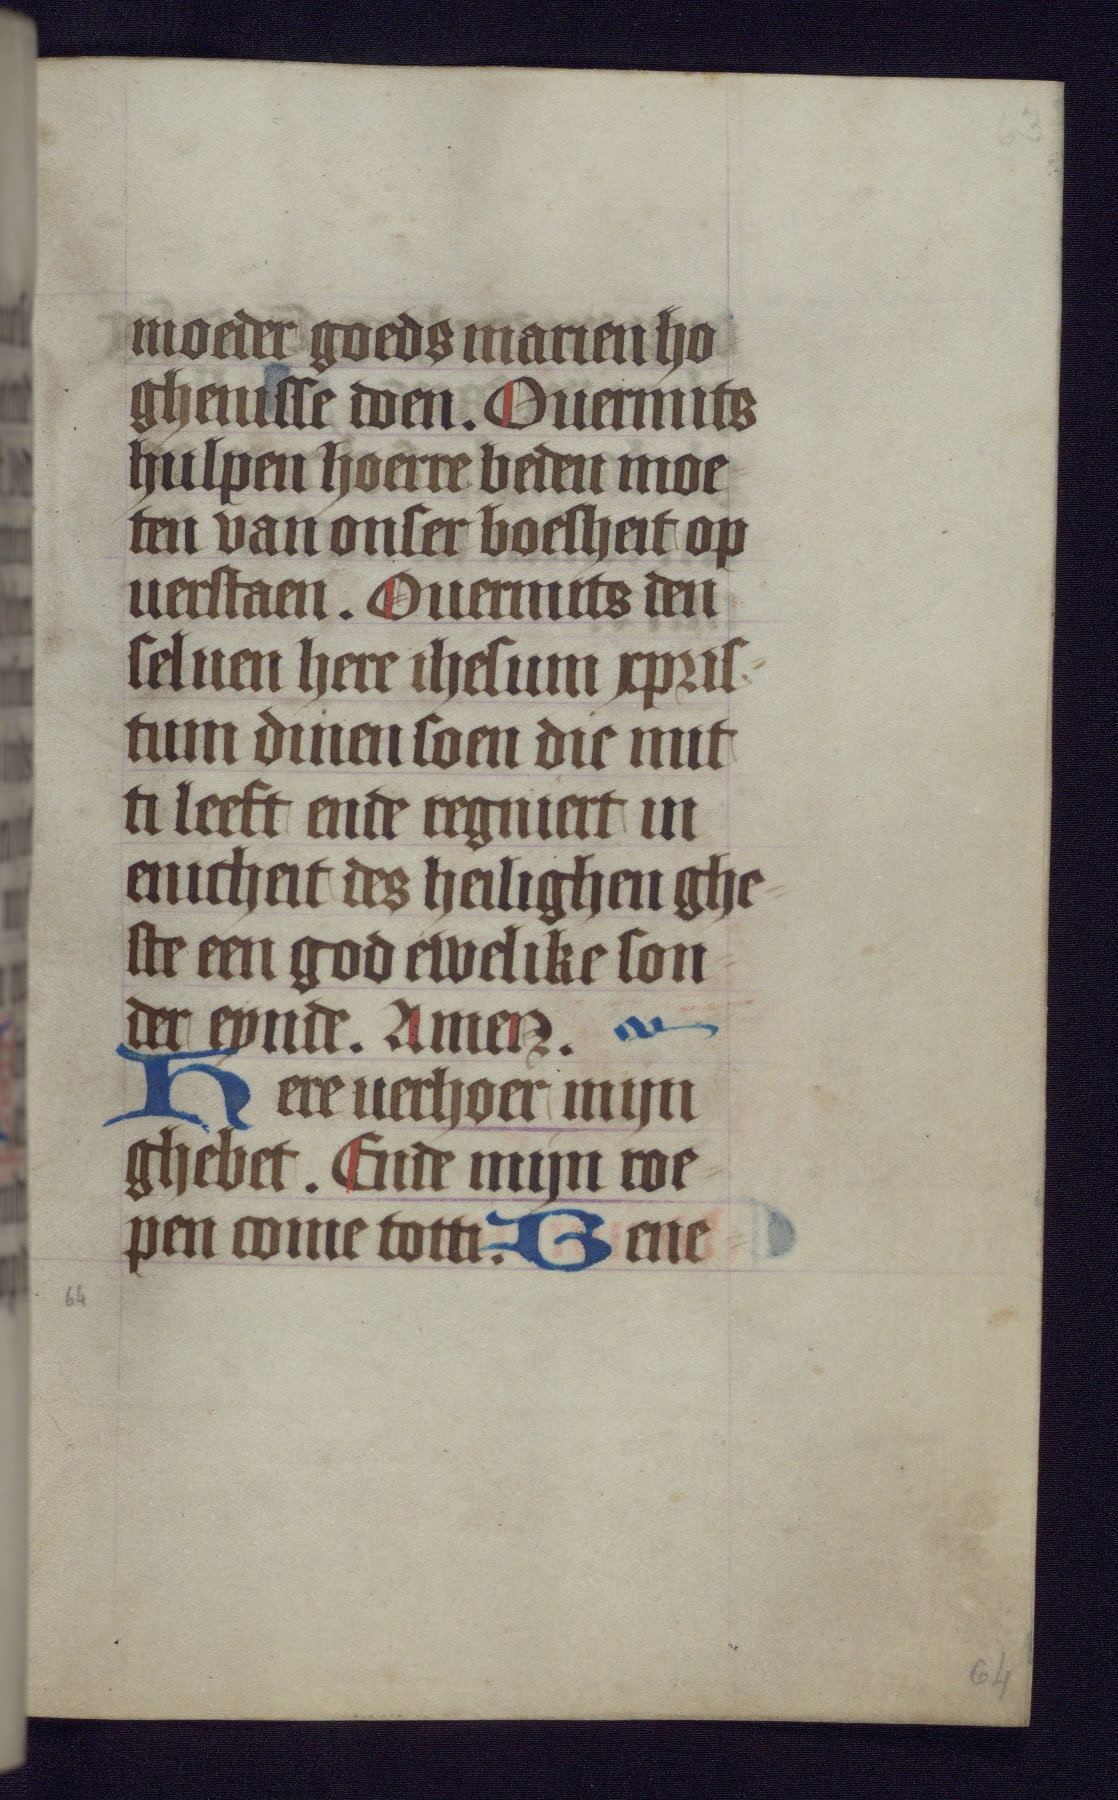 63
moeder goeds marien ho
ghenisse doen. Ouermits
hulpen hoerre beden moe
ten van onser boesheit op
uerstaen. Ouermits den
seluen here ihesum xpris
tum dinen soen die mit
ti leeft ende regniert in
enicheit des heilighen ghe
ste een god ewelike son
der eynde. Amen.
Here uerhoer mijn
ghebet. Ende mijn roe
pen come totti. Bene
64
64